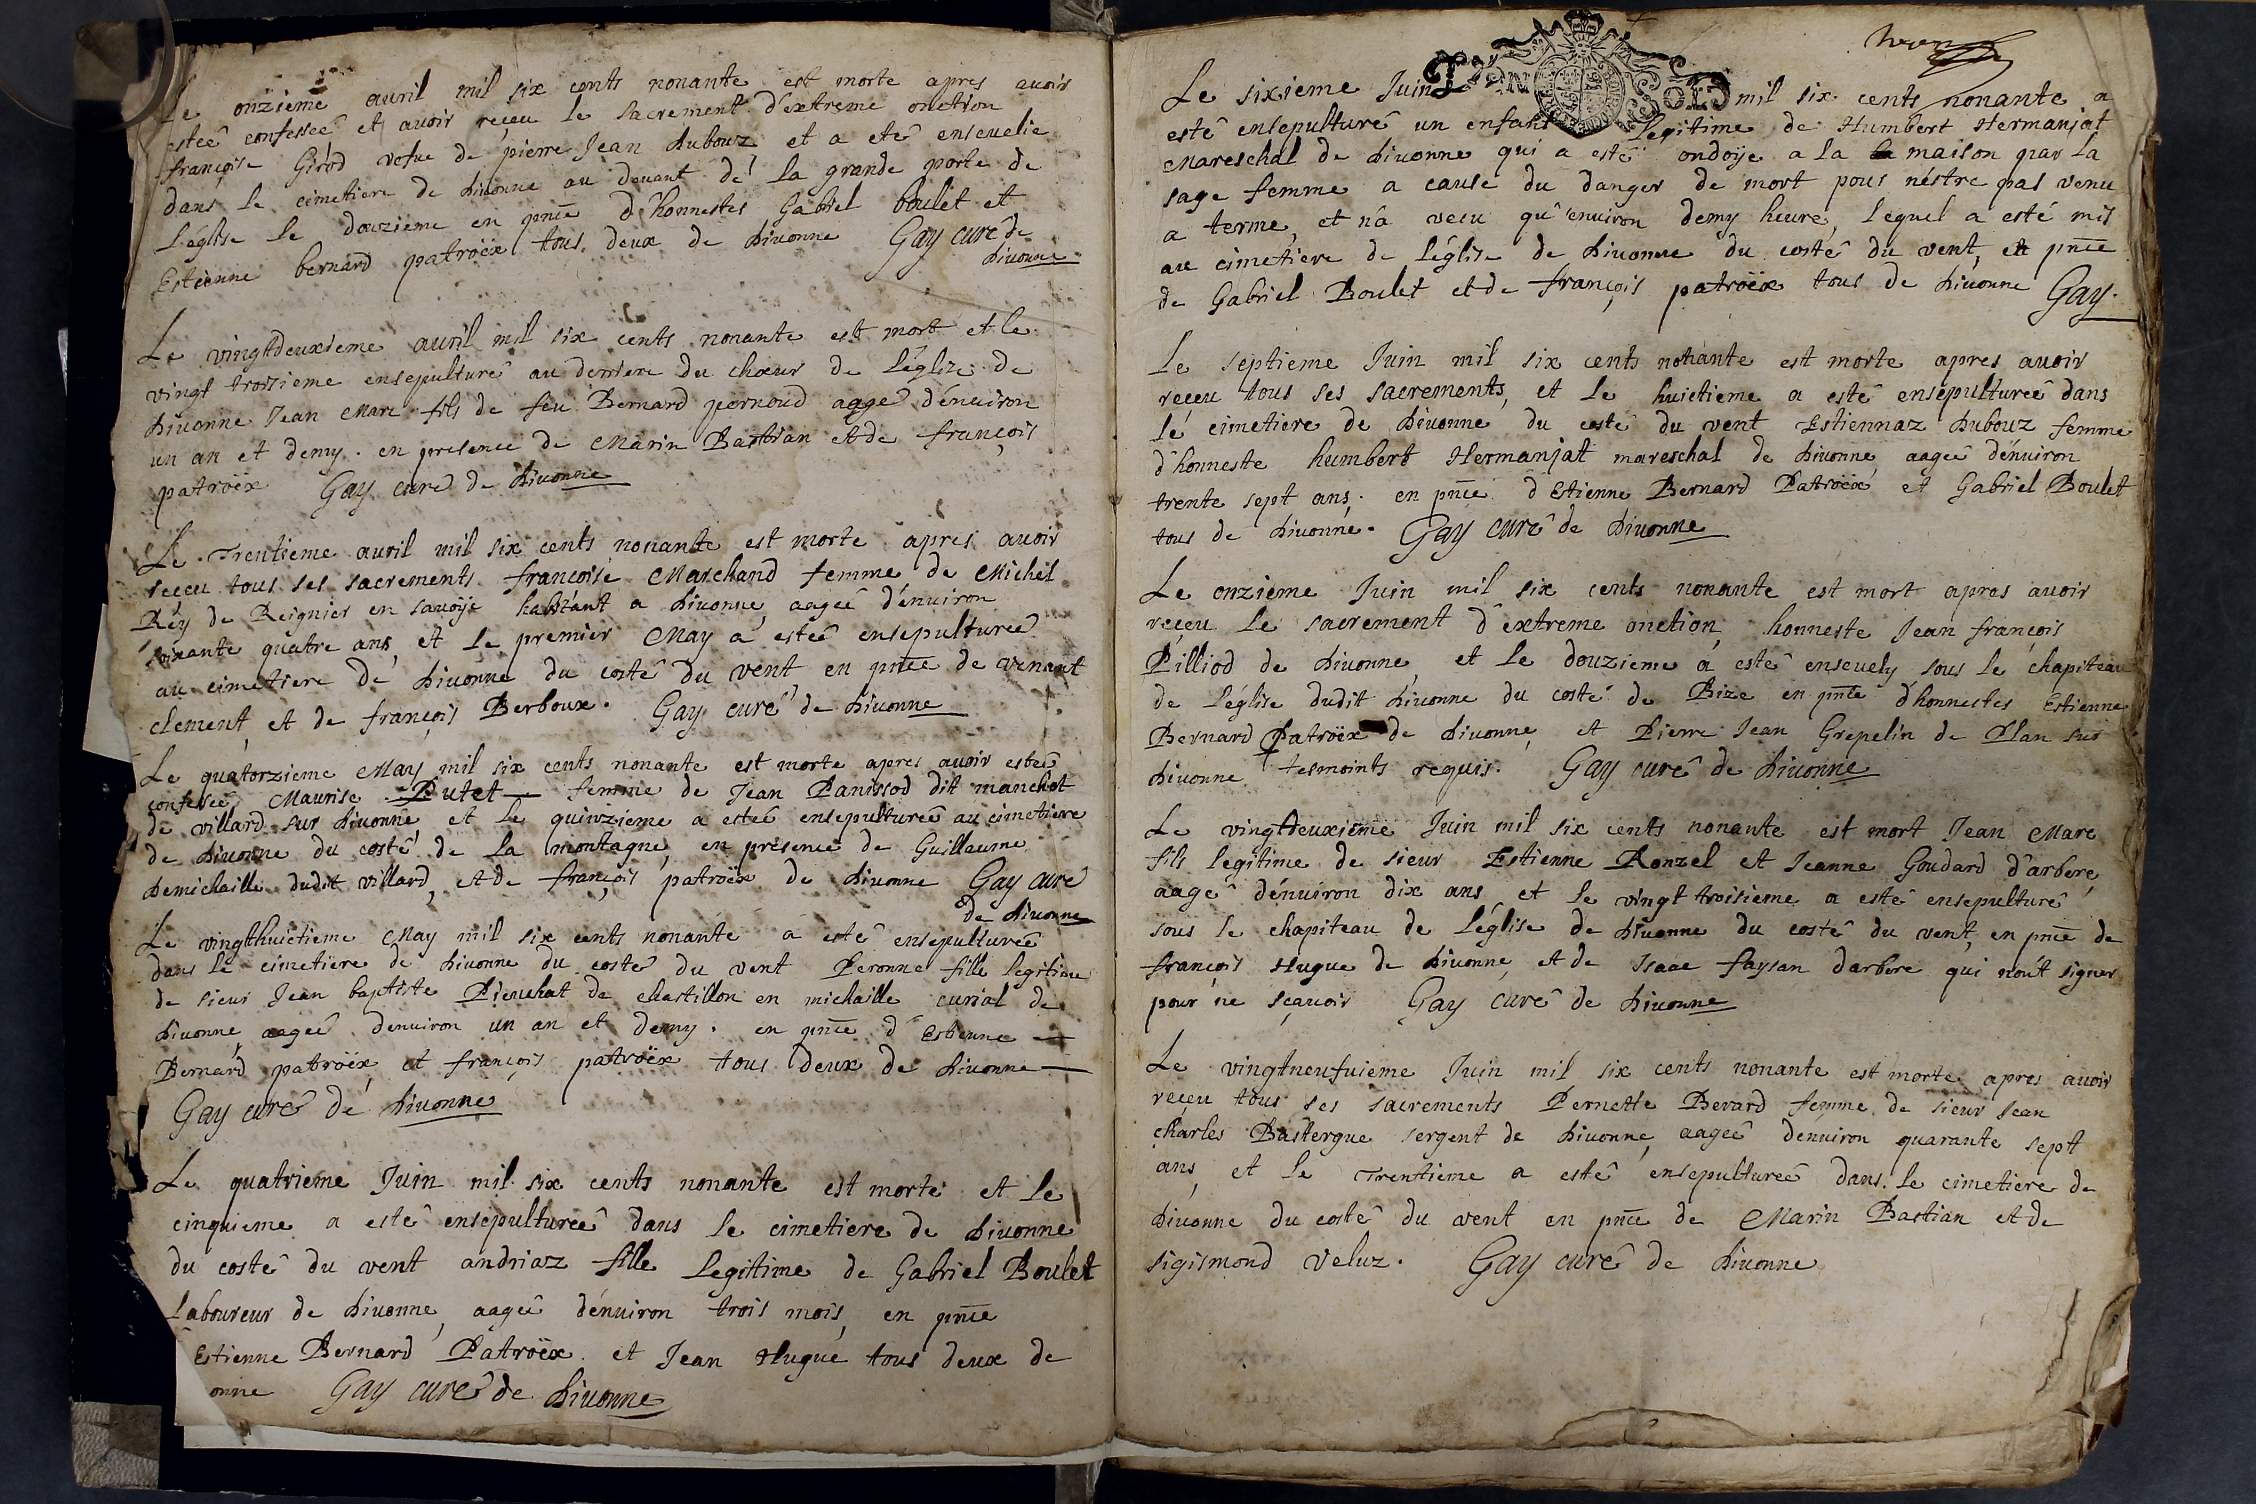 Le onzieme auril mil six cents nonante est morte apres auoir
esteê confesseê et auoir reçeu le sacrement d'extreme onction
françoise Girod vefue de pierre Jean Dubouz et a eté enseuelie
dans le cimetiere de Diuonne au deuant de la grande porte de
l'églíse le douzieme en pnce d'honnestes Gabriel boulet et
Estienne bernard patroëx tous deux de Diuonne Gay curé de
Diuonne
Le vingtdeuxieme auril mil six cents nonante est mort et le
vingt troisieme ensepulturê au derriere du chœur de L'églize de
Diuonne Jean Marc fils de feu Bernard pernoud aagé d'enuiron
un an et demy. en presence de Marin Bastian et de françois
patroëx Gay curé de Diuonne
Le Trentieme auril mil six cents nonante est morte apres auoir
reçeu tous ses sacrements françoise Marchand femme de Michel
Rey de Reignier en sauoije habitant a Diuonne, aageê d'enuiron
soixante quatre ans, et le premier May a esteê ensepultureê
au cimetiere de Diuonne du costé du vent en pnce de venant
clement, et de françois Berboux. Gay curé de Diuonne
Le quatorzieme May mil six cents nonante est morte apres auoir esteê
confesseê, Maurise Dutet femme de Jean Panissod dit manchot
de villard sur Diuonne, et le quinzieme a esteê ensepultureê au cimetiere
de Diuonne du costé de la montagne, en presence de Guillaume
Demichaille dudit villard, et de françois patroëx de Diuonne Gay curé
de Diuonne
Le vingthuictieme May mil six cents nonante a estê ensepultureê
dans le cimetiere de Diuonne du costé du vent Peronne fille legitime
de sieur Jean baptiste Pieuchat de chastillon en michaille curial de
Diuonne, aageê denuiron un an et demy. en pnce d'Estienne
Bernard patroëx, et françois patroëx tous deux de Diuonne
Gay curé de Diuonne
Le quatrieme Juin mil six cents nonante est morte et le
cinquieme a estê ensepultureê dans le cimetiere de Diuonne
du costé du vent andriaz fille Legitime de Gabriel Boulet
Laboureur de Diuonne, aageê d'enuiron trois mois, en pnce
Estienne Bernard Patroëx et Jean Hugue tous deux de
onne Gay curé de Diuonne
Le sixieme Juin mil six cents nonante a
estê ensepulturê un enfant legitime de Humbert Hermanjat
Mareschal de Diuonne qui a esté ondoije a la maison par la
sage femme a cause du danger de mort pour n'estre pas venu
a terme, et n'a vecu qu'enuiron demy heure, lequel a esté mis
au cimetiere de L'églíse de Diuonne du costé du vent, en pnce
de Gabriel Boulet et de françois patroëx tous de Diuonne Gay.
Le septieme Juin mil six cents nonante est morte apres auoir
reçeu tous ses sacrements, et le huictieme a estê ensepultureê dans
le cimetiere de Diuonne du costé du vent Estiennaz Dubouz femme
d'honneste humbert Hermanjat mareschal de Diuonne, aageê d'enuiron
trente sept ans. en pnce d'Estienne Bernard Patroëx et Gabriel Boulet
tous de Diuonne. Gay curé de Diuonne
Le onzieme Juin mil six cents nonante est mort apres auoir
reçeu le sacrement d'extreme onction, honneste Jean françois
Pilliod de Diuonne, et le douzieme a estê enseuely sous le chapiteau
de L'églíse dudit Diuonne du costé de Bize en pnce d'honnestes Estienne
Bernard Patroëx de Diuonne, et Pierre Jean Grepelin de Plan sur
Diuonne tesmoints requis. Gay curê de Diuonne
Le vingtdeuxieme Juin mil six cents nonante est mort Jean Marc
fils legitime de sieur Estienne Ronzel et Jeanne Goudard d'arbere,
aagê d'enuiron dix ans, et le vingt troisieme a estê ensepulturê
sous le chapiteau de L'églíse de Diuonne du costé du vent, en pnce de
françois Hugue de Diuonne, et de Isaac faysan darbere qui n'ont signer
pour ne sçauoir Gay curé de Diuonne
Le vingtneufuieme Juin mil six cents nonante est morte apres auoir
reçeu tous ses sacrements Pernette Berard femme de sieur Jean
charles Bastergue sergent de Diuonne, aageê denuiron quarante sept
ans, et le Trentieme a estê ensepultureê dans le cimetiere de
Diuonne du costé du vent en pnce de Marin Bastian et de
sigismond veluz. Gay curé de Diuonne